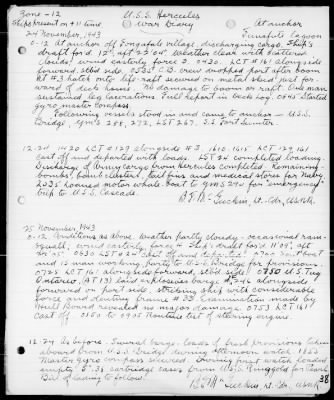 Zone -12
U.S.S. Hercules
Ships present on +11 time
War Diary
At anchor
24 November, 1943
Funafuti Lagoon
0-12 At anchor off Fongafale village, discharging cargo. Ship's
draft for'd 12', aft 23'. Weather clear with scattered
clouds, wind easterly force 3. 0430. LCT # 161 alongside
forward, stbd side. 0535 C.G. crew dropped port after boom
at # 3 hatch onto life raft secured on metal shed just for-
ward of deck house. No damage to boom or raft. One man
sustained leg lacerations. Full report in deck log. 0845 Started
gyro master compass.
Following vessels stood in and came to anchor - U.S.S.
Bridge, YMS's 288, 272, LST 267, S.S. Fort Sumter.
12-24 1420 LCT # 129 alongside # 3. 1610-1615 LCT 129, 161
cast off and departed with loads. LST 24 completed loading.
Discharge of Army Cargo from Hercules completed. Remaining
bombs, bomb clusters, tail fins and medical stores for Navy.
2035 Loaned motor whale boat to YMS 290 for emergency
trip to U.S.S. Cascade.
Lt. Cdr, USNR.
25 November, 1943
0-12 Conditions as above. Weather partly cloudy - occasional rain-
squall, wind easterly force 4. Ship's draft for'd 11' 09", aft
0630 LST # 24 cast off and departed. 0700 Sent boat
and 12 man working party to U.S.S. Bridge for provisions.
0725 LCT 161 alongside forward, stbd side. 0750 U.S. Tug
Ontario, (AT 13) laid explosives barge # 246 alongside
forward on port side, striking ship with considerable
force and denting frame # 33. Examination made by
Hull Board revealed no major damage. 0755 LCT 161
cast off. 0850 to 0905 Routine test of steering engine.
12-24 As before. Several barge loads of fresh provisions taken
aboard from U.S.S. Bridge during afternoon watch. 1255
Master gyro compass secured. During first watch loaded
empty 5".38 cartridge cases from U.S.S. Ringgold for Pearl.
Bill of lading to follow.
Lt. Cdr. USNR
38